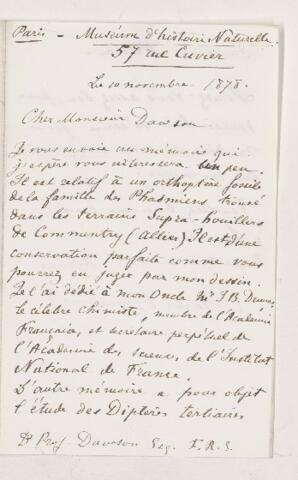 Paris - Muséum d'histoire Naturelle
57 rue Cuvier
Le 10 novembre 1878.
Cher Monsieur Dawson
Je vous envoie un mémoire qui
j'espère vous intéressera un peu.
Il est relatif à un orthoptère fossile
de la famille des Phasmiens trouvé
dans les terrains supra-houillers
de Commentry (Allier) Il est d'une
conservation parfaite comme vous
pourrez en juger par mon dessin.
Je l'ai dédié à mon Oncle Mr J B Dumas,
le célèbre chimiste, membre de l'Académie
Française, et secrétaire perpétuel de
l'Académie des sciences de l'Institut
National de France.
L'autre mémoire a pour objet
l'étude des Diptères tertiaires
Dr Prof Dawson Esq. F.R.S.